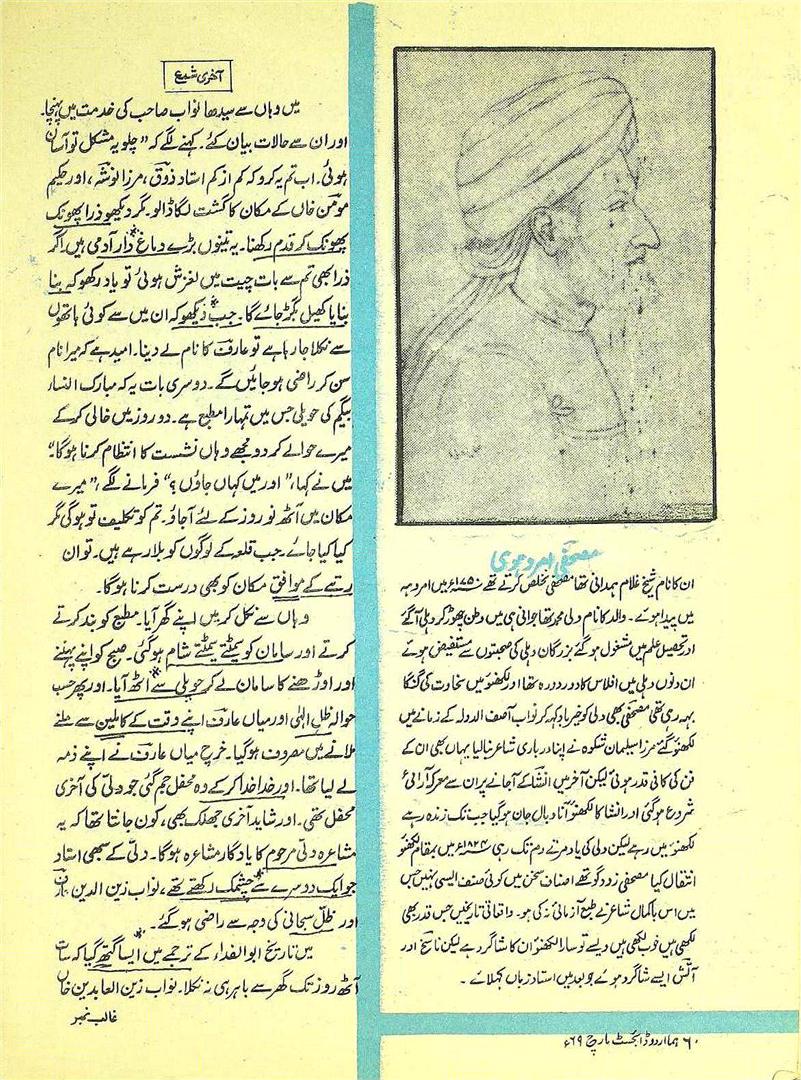 مصحفی امروہوی
ان کا نام شیخ غلام ہمدانی تھا مصحفی تخلص کرتے تھے ۱۷۵۰ء میں امروہہ
میں پیدا ہوئے۔ والد کا نام ولی محمد تھا جوانی ہی میں وطن چھوڑ کر دہلی آ گئے
اور تحصیل علم میں مشغول ہو گئے بزرگان دہلی کی صحبتوں سے مستفیض ہوئے
ان دنوں دہلی میں افلاس کا دور دورہ تھا اور لکھنؤ میں سخاوت کی گنگا
بہہ رہی تھی مصحفی بھی دلی کو خیرباد کہہ کر نواب آصف الدولہ کے زمانے میں
لکھنؤ گئے مرزا سلیمان شکوہ نے اپنا درباری شاعر بنا لیا یہاں بھی ان کے
فن کی کافی قدر ہوئی لیکن آخر میں انشا کے آ جانے پر ان سے معرکہ آرائی
شروع ہو گئی اور انشا کا لکھنؤ آنا وبال جان ہو گیا جب تک زندہ رہے
لکھنؤ میں رہے لیکن دلی کی یاد مرتے دم تک رہی ۱۸۲۴ء میں بمقام لکھنؤ
انتقال کیا مصحفی زود گو تھے اصناف سخن میں کوئی صنف ایسی نہیں جس
میں اس باکمال شاعر نے طبع آزمائی نہ کی ہو۔ واقعاتی تاریخیں جس قدر بھی
لکھی ہیں خوب لکھی ہیں ویسے تو سارا لکھنؤ ان کا شاگرد ہے لیکن ناسخ اور
آتش ایسے شاگرد ہوئے جو بعد میں استاد زباں کہلائے۔
۶۰ ہما اردو ڈائجسٹ مارچ ۶۹ء
آخری شمع
میں وہاں سے سیدھا نواب صاحب کی خدمت میں پہنچا۔
اور ان سے حالات بیان کئے۔ کہنے لگے کہ "چلو یہ مشکل تو آسان
ہوئی۔ اب تم یہ کرو کہ کم از کم استاد ذوق، مرزا نوشہ، اور حکیم
مومن خاں کے مکان کا گشت لگا ڈالو۔ مگر دیکھو ذرا پھونک
پھونک کر قدم رکھنا۔ یہ تینوں بڑے دماغ دار آدمی ہیں اگر
ذرا بھی تم سے بات چیت میں لغزش ہوئی تو یاد رکھو کہ بنا
بنایا کھیل بگڑ جائے گا۔ جب دیکھو کہ ان میں سے کوئی ہاتھوں
سے نکلا جا رہا ہے تو عارف کا نام لے دینا۔ امید ہے کہ میرا نام
سن کر راضی ہو جائیں گے۔ دوسری بات یہ کہ مبارک النسار
بیگم کی حویلی جس میں تمہارا مطبع ہے۔ دو روز میں خالی کر کے
میرے حوالے کر دو مجھے وہاں نشست کا انتظام کرنا ہوگا۔"
میں نے کہا، "اور میں کہاں جاؤں؟" فرمانے لگے، "میرے
مکان میں آٹھ نو روز کے لئے آ جاؤ۔ تم کو تکلیف تو ہوگی مگر
کیا کیا جائے۔ جب قلعہ کے لوگوں کو بلا رہے ہیں۔ تو ان
رتبے کے موافق مکان کو بھی درست کرنا ہوگا۔
وہاں سے نکل کر میں اپنے گھر آیا۔ مطبع کو بند کرتے
کرتے اور سامان کو سمیٹتے سمیٹتے شام ہو گئی۔ صبح کو اپنے پہننے
اور اوڑھنے کا سامان لے کر حویلی سے اٹھ آیا۔ اور پھر حسب
حوالہ ظل الٰہی اور میاں عارف اپنے وقت کے کاملین سے ملنے
ملانے میں مصروف ہو گیا۔ خرچ میاں عارف نے اپنے ذمہ
لے لیا تھا۔ اور خدا خدا کر کے وہ محفل جم گئی جو دلی کی آخری
محفل تھی۔ اور شاید آخری جھلک بھی، کون جانتا تھا کہ یہ
مشاعرہ دلی مرحوم کا یادگار مشاعرہ ہوگا۔ دلی کے سبھی استاد
جو ایک دوسرے سے چشمک رکھتے تھے، نواب زین الدین
اور ظل سبحانی کی وجہ سے راضی ہو گئے۔
میں تاریخ ابو الفداء کے ترجمے میں ایسا گتھ گیا کہ سات
آٹھ روز تک گھر سے باہر ہی نہ نکلا۔ نواب زین العابدین خاں
غالب نمبر